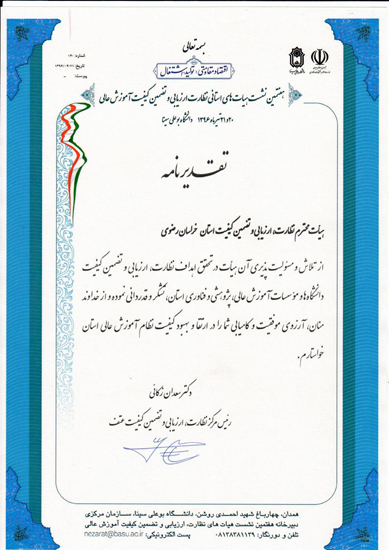 بسمه تعالی
اقتصاد مقاومتی: تولید، اشتغال
شماره:
تاریخ:
پیوست:
هفتمین نشست هیات های استانی نظارت، ارزیابی و تضمین کیفیت آموزش عالی
۲۰ و ۲۱ تیرماه ۱۳۹۶ دانشگاه بوعلی سینا
تقدیرنامه
هیات محترم نظارت، ارزیابی و تضمین کیفیت استان خراسان رضوی
از تلاش و مسئولیت پذیری آن هیات در تحقق اهداف نظارت، ارزیابی و تضمین کیفیت
دانشگاه ها و مؤسسات آموزش عالی، پژوهشی و فناوری استان، تشکر و قدردانی نموده و از خداوند
منان، آرزوی موفقیت و کامیابی شما را در ارتقا و بهبود کیفیت نظام آموزش عالی استان
خواستارم.
دکتر سعدان زکائی
رئیس مرکز نظارت، ارزیابی و تضمین کیفیت عتف
همدان، چهارباغ شهید احمدی روشن، دانشگاه بوعلی سینا، سازمان مرکزی
دبیرخانه هفتمین نشست هیات های نظارت، ارزیابی و تضمین کیفیت آموزش عالی
تلفن و دورنگار: ۰۸۱۳۸۳۸۱۱۳۹ پست الکترونیکی: nezarat@basu.ac.ir